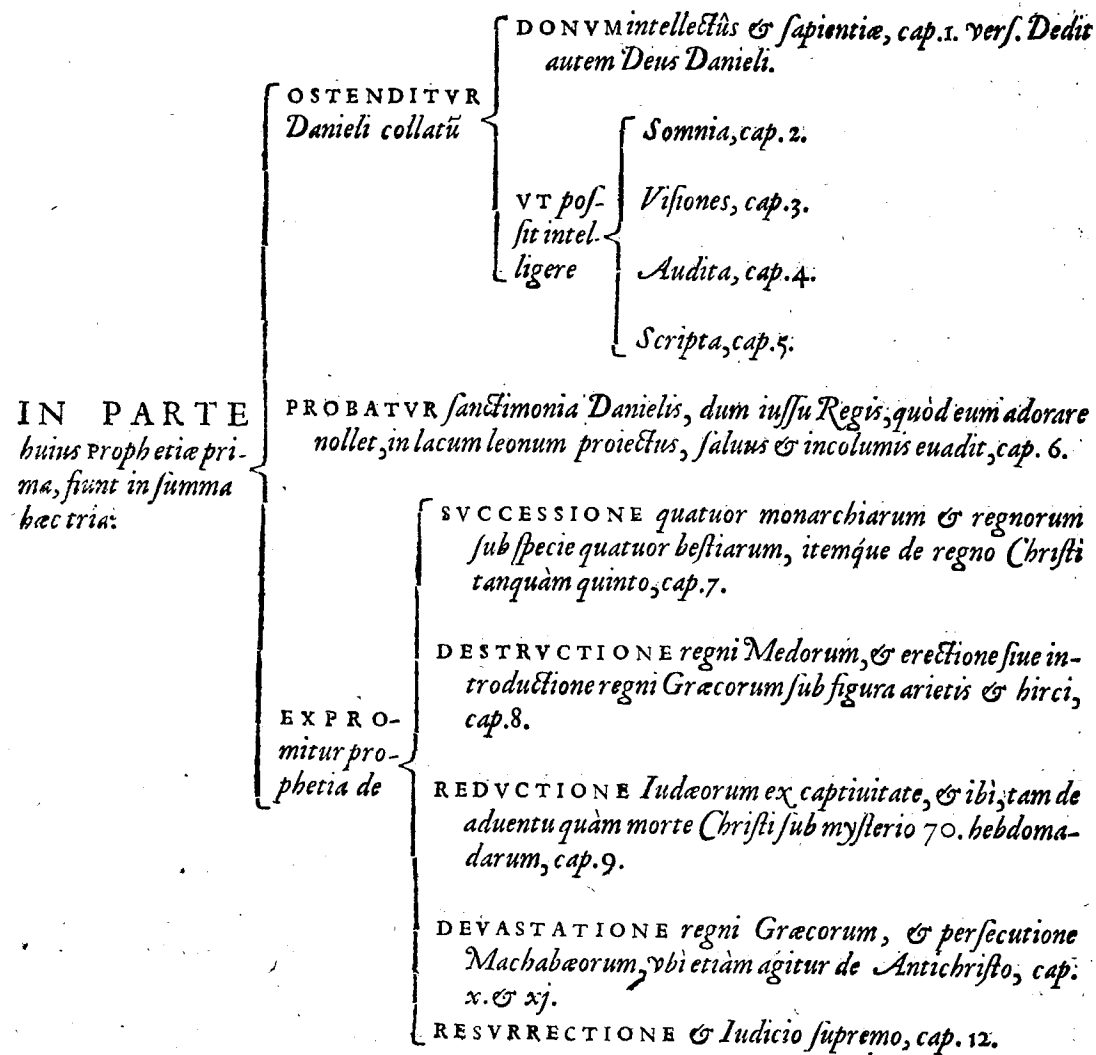 IN PARTE
huius Prophetiæ pri-
ma, fiunt in ſumma
hæc tria:
OSTENDITVR
Danieli collatū
DONVM intellectûs & ſapientiæ, cap.1. verſ. Dedit
autem Deus Danieli.
VT poſ-
ſit intel-
ligere
Somnia, cap. 2.
Viſiones, cap.3.
Audita, cap.4.
Scripta, cap.5.
PROBATVR ſanctimonia Danielis, dum iuſſu Regis, quòd eum adorare
nollet, in lacum leonum proiectus, ſaluus & incolumis euadit, cap. 6.
EXPRO-
mitur pro-
phetia de
SVCCESSIONE quatuor monarchiarum & regnorum
ſub ſpecie quatuor beſtiarum, itemq́ue de regno Chriſti
tanquàm quinto, cap.7.
DESTRVCTIONE regni Medorum, & erectione ſiue in-
troductione regni Græcorum ſub figura arietis & hirci,
cap.8.
REDVCTIONE Iudæorum ex captiuitate, & ibì, tam de
aduentu quàm morte Chriſti ſub myſterio 70. hebdoma-
darum, cap.9.
DEVASTATIONE regni Græcorum, & perſecutione
Machabæorum, vbì etiàm agitur de Antichriſto, cap.
x. & xj.
RESVRRECTIONE & Iudicio ſupremo, cap. 12.